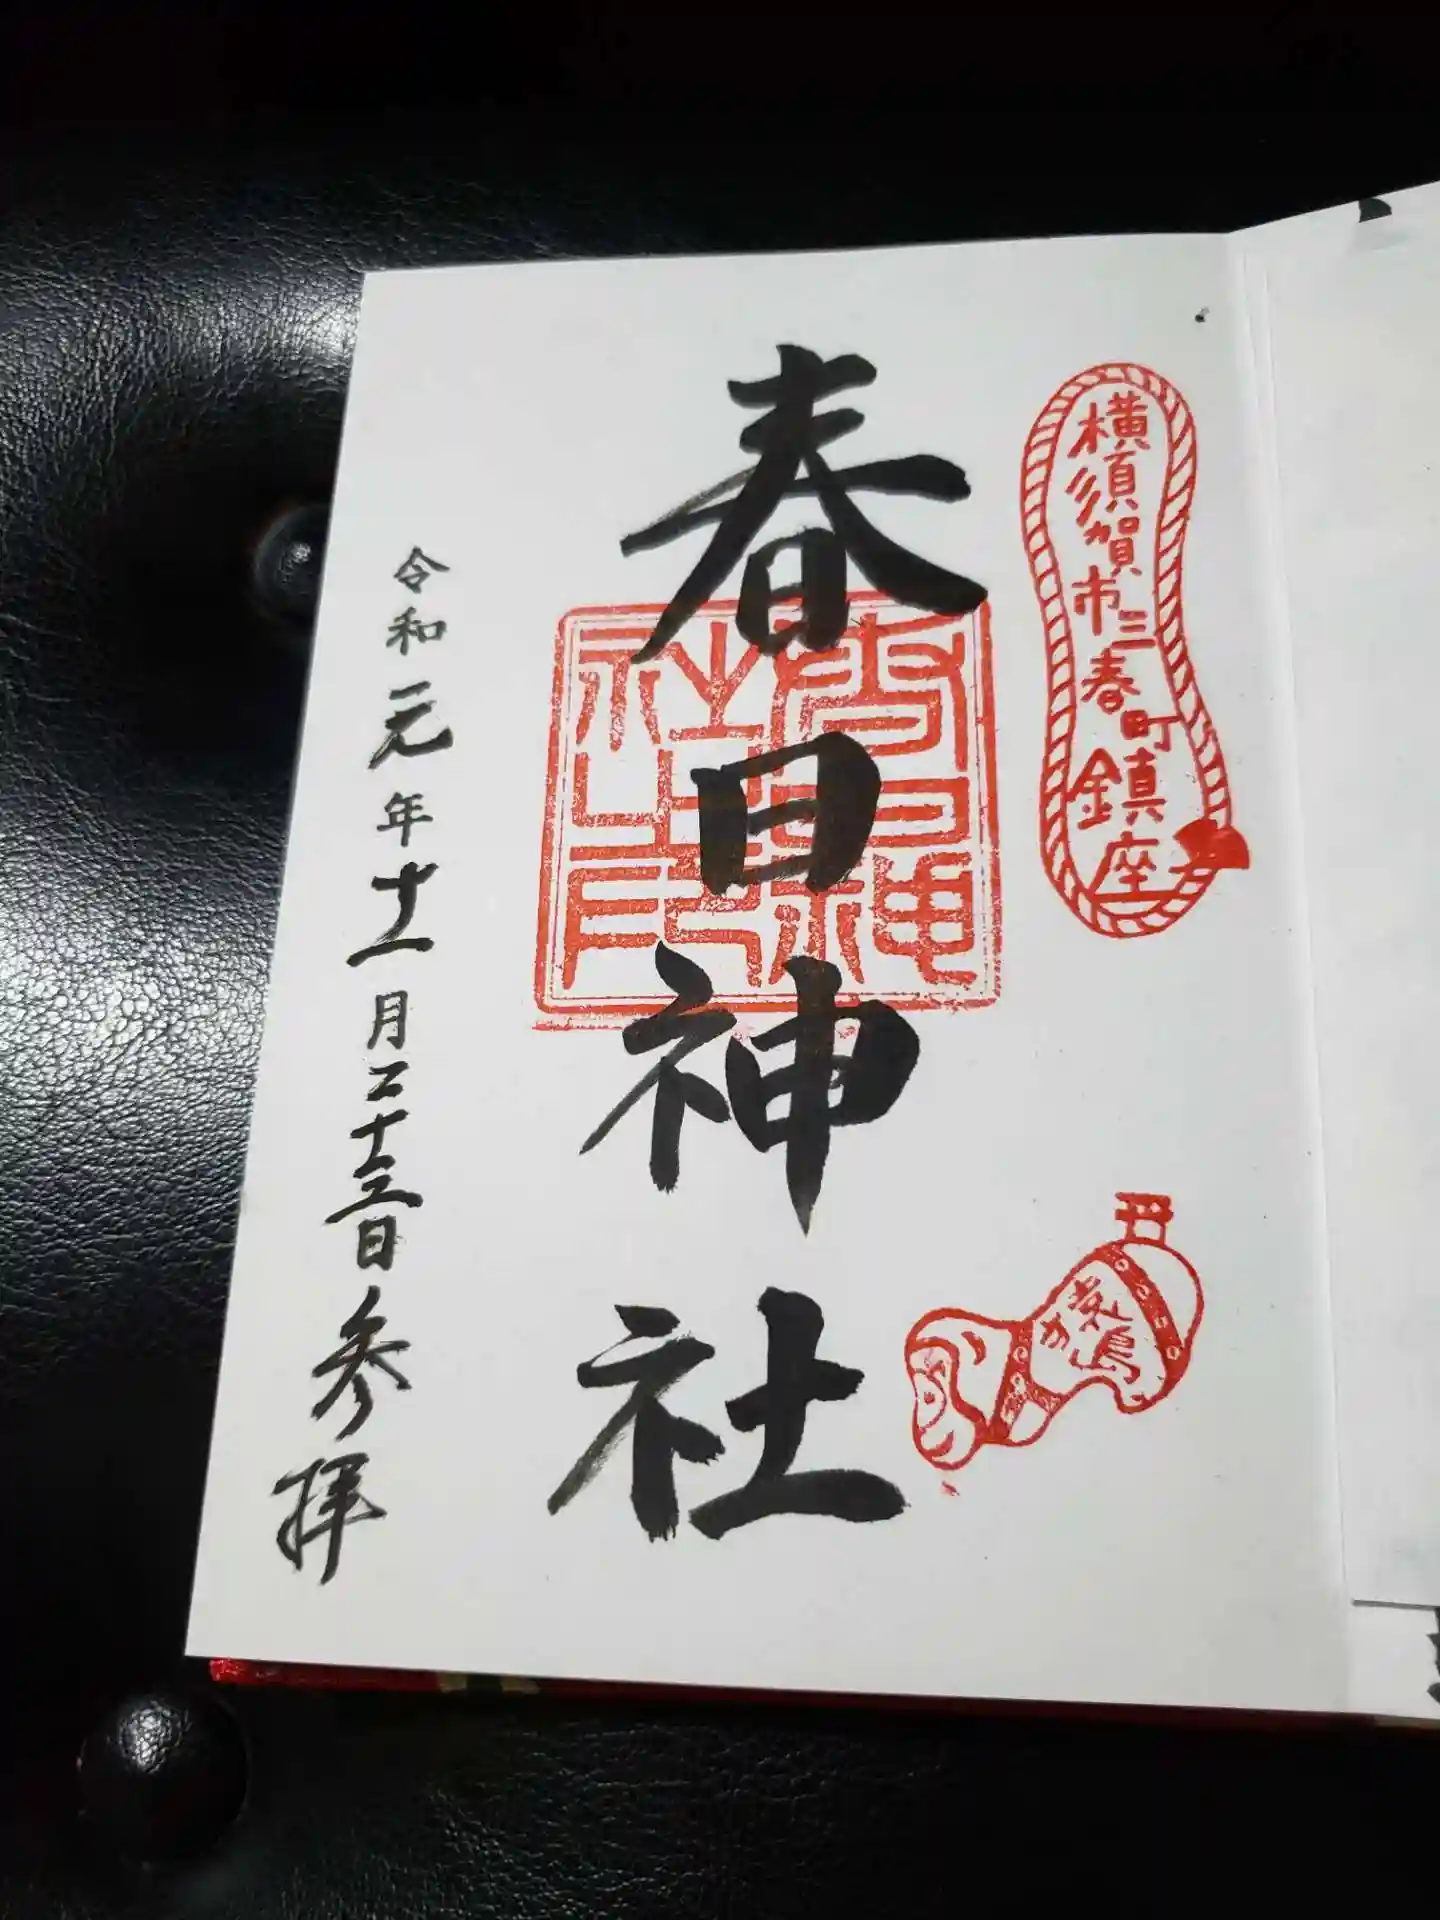 横須賀市三春町鎮座
春日神社
春日神社之印
猿島
令和元年十一月二十三日参拝